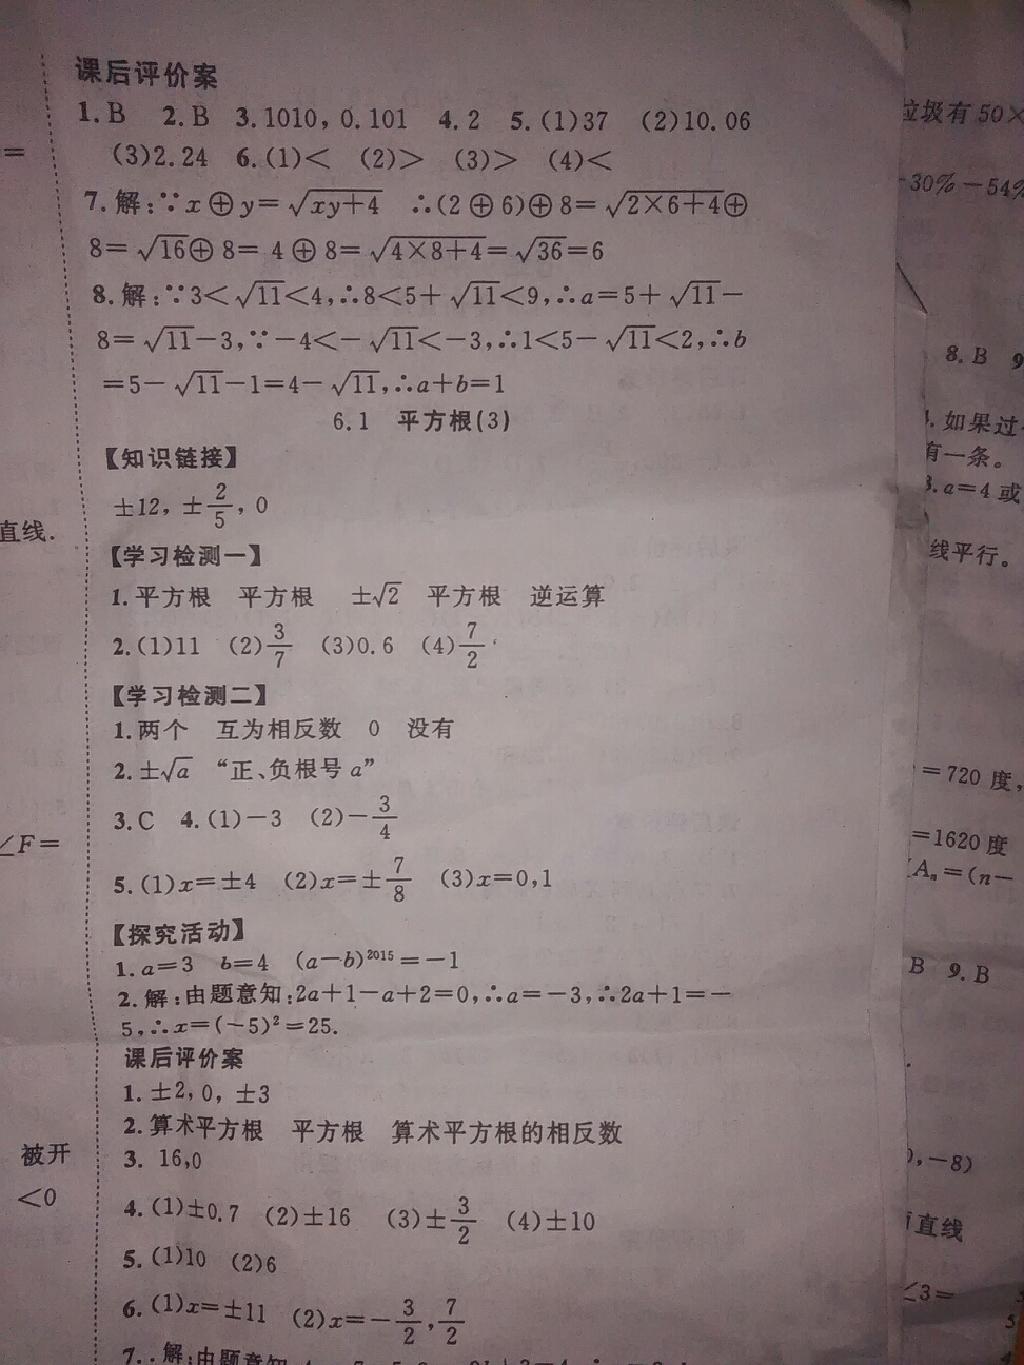 课后评价案
1.B 2.B 3.1010,0.101 4.2 5.(1)37 (2)10.06
(3)2.24 6.(1)< (2)> (3)> (4)<
7.解:∵x⊕y=√(xy+4) ∴(2⊕6)⊕8=√(2×6+4)⊕
8=√16⊕8=4⊕8=√(4×8+4)=√36=6
8.解:∵3<√11<4,∴8<5+√11<9,∴a=5+√11-
8=√11-3,∵-4<-√11<-3,∴1<5-√11<2,∴b
=5-√11-1=4-√11,∴a+b=1
6.1 平方根(3)
【知识链接】
±12,±2/5,0
【学习检测一】
1.平方根 平方根 ±√2 平方根 逆运算
2.(1)11 (2)3/7 (3)0.6 (4)7/2
【学习检测二】
1.两个 互为相反数 0 没有
2.±√a “正、负根号a”
3.C 4.(1)-3 (2)-3/4
5.(1)x=±4 (2)x=±7/8 (3)x=0,1
【探究活动】
1.a=3 b=4 (a-b)²⁰¹⁵=-1
2.解:由题意知:2a+1-a+2=0,∴a=-3,∴2a+1=-
5,∴x=(-5)²=25.
课后评价案
1.±2,0,±3
2.算术平方根 平方根 算术平方根的相反数
3. 16,0
4.(1)±0.7 (2)±16 (3)±3/2 (4)±10
5.(1)10 (2)6
6.(1)x=±11 (2)x=-3/2,7/2
7..解:由题意知
=
直线.
∠F=
被开
<0
垃圾有50×
-30%-54%
8.B 9
如果过
有一条。
3.a=4或
线平行。
=720度,
=1620度
Aₙ=(n-
B 9.B
,-8)
直线
∠3=